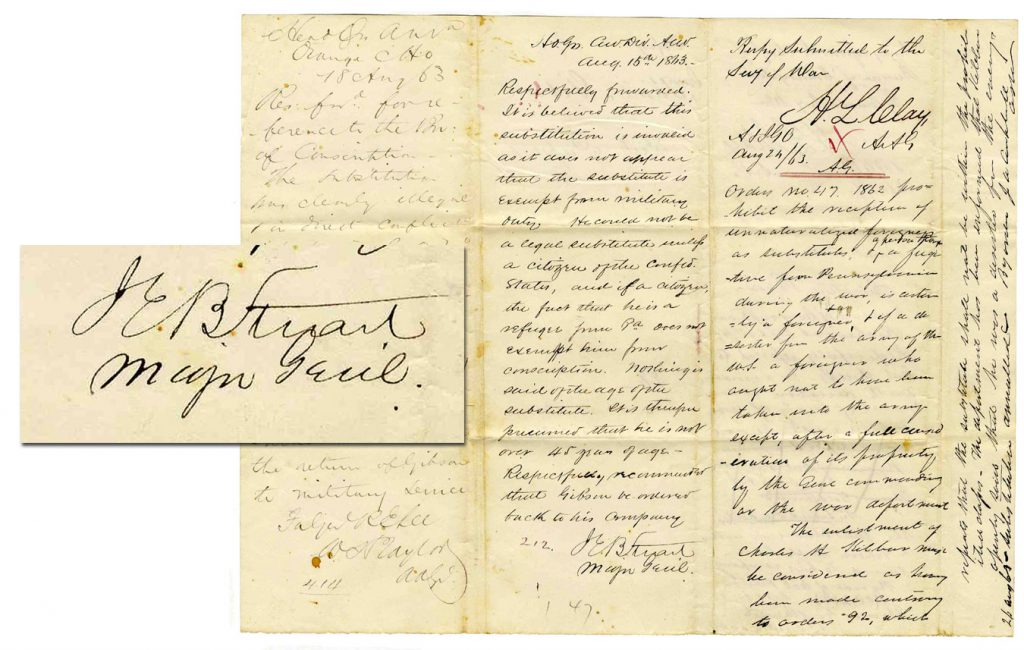 Head Qrs A N Va
Orange C Ho
18 Aug 63
Res. ford. for re-
-ference to the Bu:
of Conscription -
The Substitution
was clearly illegal
direct conflict
the return of Gibson
to military service
R E Lee
W H Taylor
A A G
414
J E B Stuart
Majr Genl.
Hd Qrs Cav Div. A.N.V.
Aug. 15th 1863.-
Respectfully forwarded.
It is believed that this
substitution is invalid
as it does not appear
that the substitute is
exempt from military
duty. He could not be
a legal substitute unless
a citizen of the Confed.
States, and if a citizen,
the fact that he is a
refugee from Pa does not
exempt him from
conscription. Nothing is
said of the age of the
substitute. It is therefore
presumed that he is not
over 45 years of age -
Respectfully recommended
that Gibson be ordered
back to his Company
212.
J E B Stuart
Majr Genl.
147
Respy Submitted to the
Secy of War
H. L. Clay
A & I G O
Aug 24/63.
A A G
A G.
Orders no. 47. 1862 pro-
hibit the reception of
unnaturalized foreigners
as substitutes, a fugi-
tive from Pennsylvania
during the war, is certain
-ly a foreigner, & if a de
-serter from the army of the
U.S. a foreigner who
ought not to have been
taken into the army
except, after a full consid
-eration of its propriety
by the Genl commanding
or the war department
The enlistment of
Charles H Wilbur must
be considered as having
been made contrary
to orders 92, which
repeats that the substitute shall not be within the prescribed
that class - The department has been informed that Wilbur
himself says that he was a deserter from the enemy's